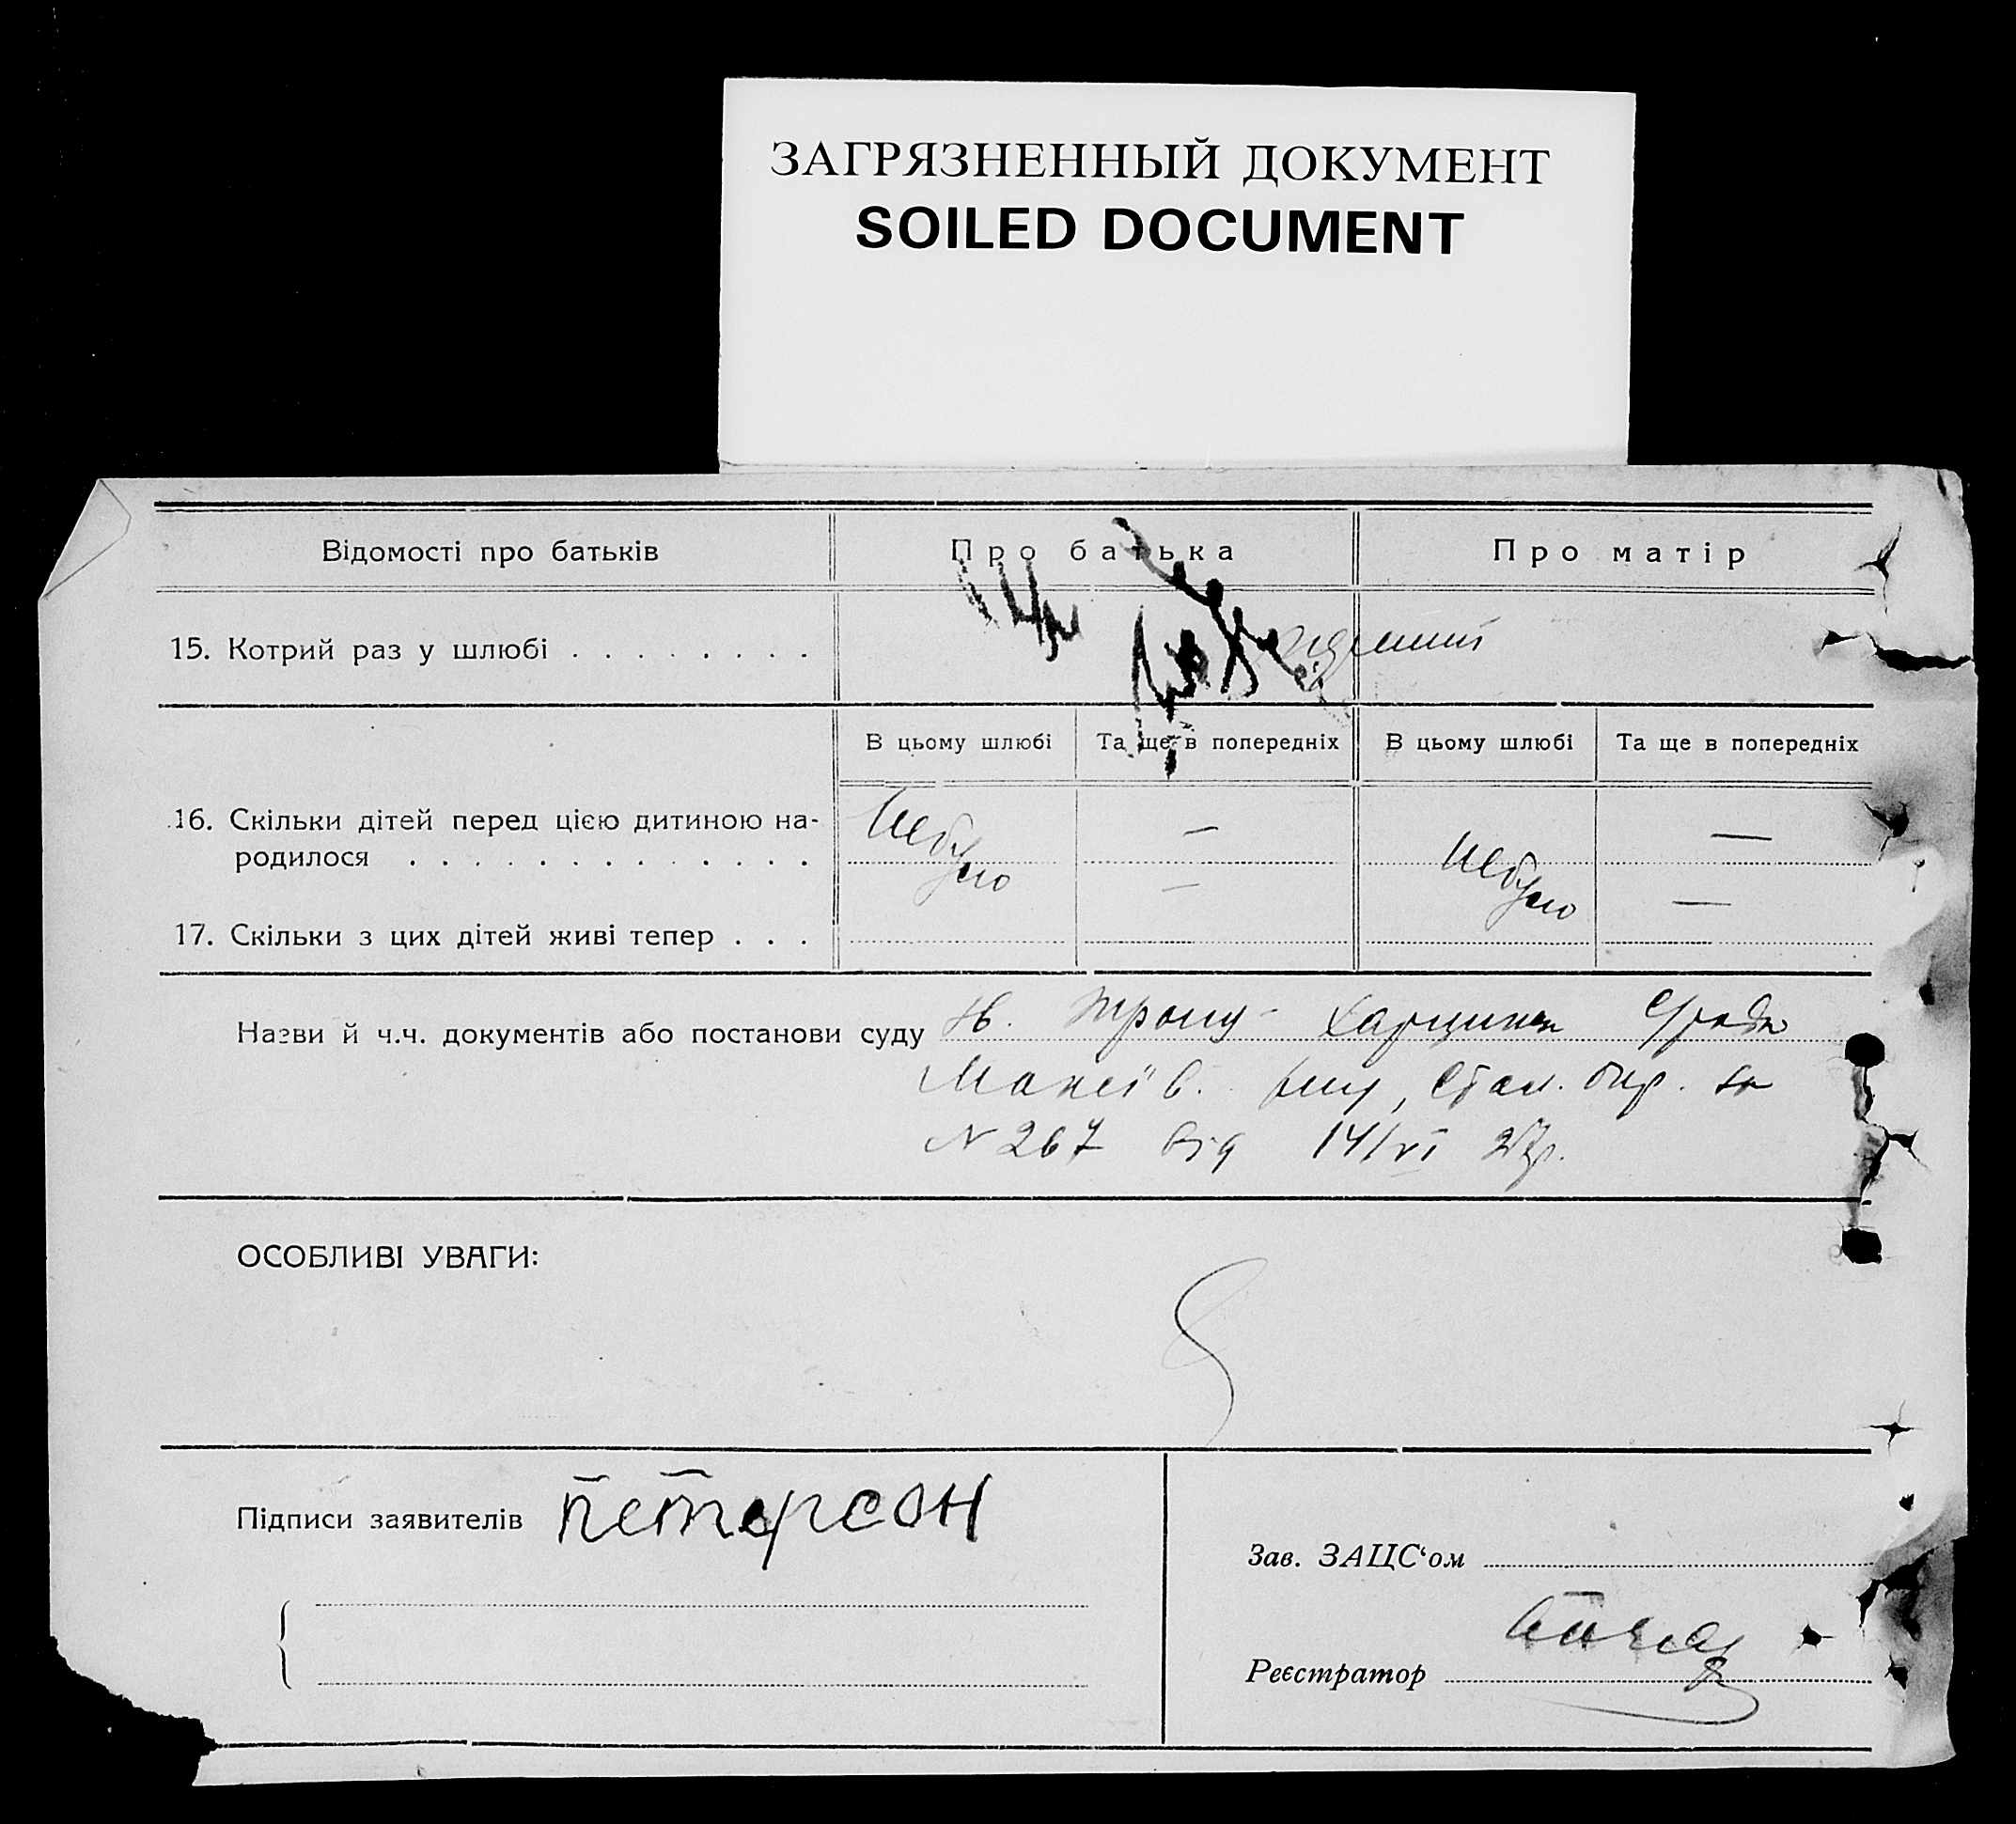 ЗАГРЯЗНЕННЫЙ ДОКУМЕНТ
SOILED DOCUMENT
Відомості про батьків Про батька Про матір
15. Котрий раз у шлюбі . . . . . . . .
В цьому шлюбі Та ще в попередніх В цьому шлюбі Та ще в попередніх
16. Скільки дітей перед цією дитиною на-
родилося . . . . . . . . . . . . . Небуло — Небуло —
17. Скільки з цих дітей живі тепер . . . — —
Назви й ч.ч. документів або постанови суду
Макеїв. Стал. окр. за
N 267 від 14/VI 27р.
ОСОБЛИВІ УВАГИ:
Підписи заявителів Петерсон
Зав. ЗАЦС‘ом
Реєстратор